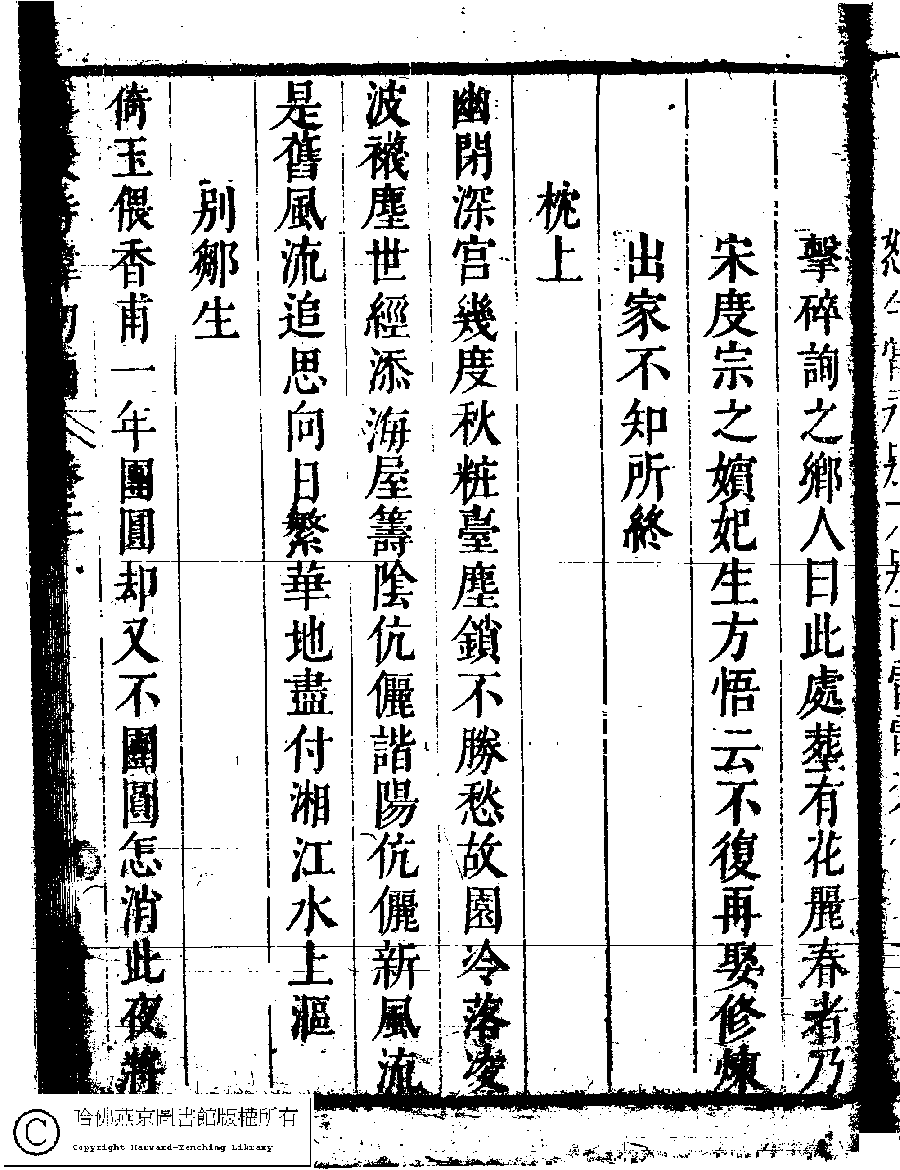 擊碎詢之鄉人曰此處塟有花麗春者乃
宋度宗之嬪妃生方悟云不復再娶修煉
出家不知所終
枕上
幽閉深宫幾度秋粧臺塵鎖不勝愁故園冷落凌
波襪塵世經添海屋籌陰伉儷諧陽伉儷新風流
是舊風流追思向日繁華地盡付湘江水上漚
别鄒生
倚玉偎香甫一年團圓却又不團圓怎消此夜將
哈佛燕京圖書館版權所有
Copyright Harvard-Yenching Library